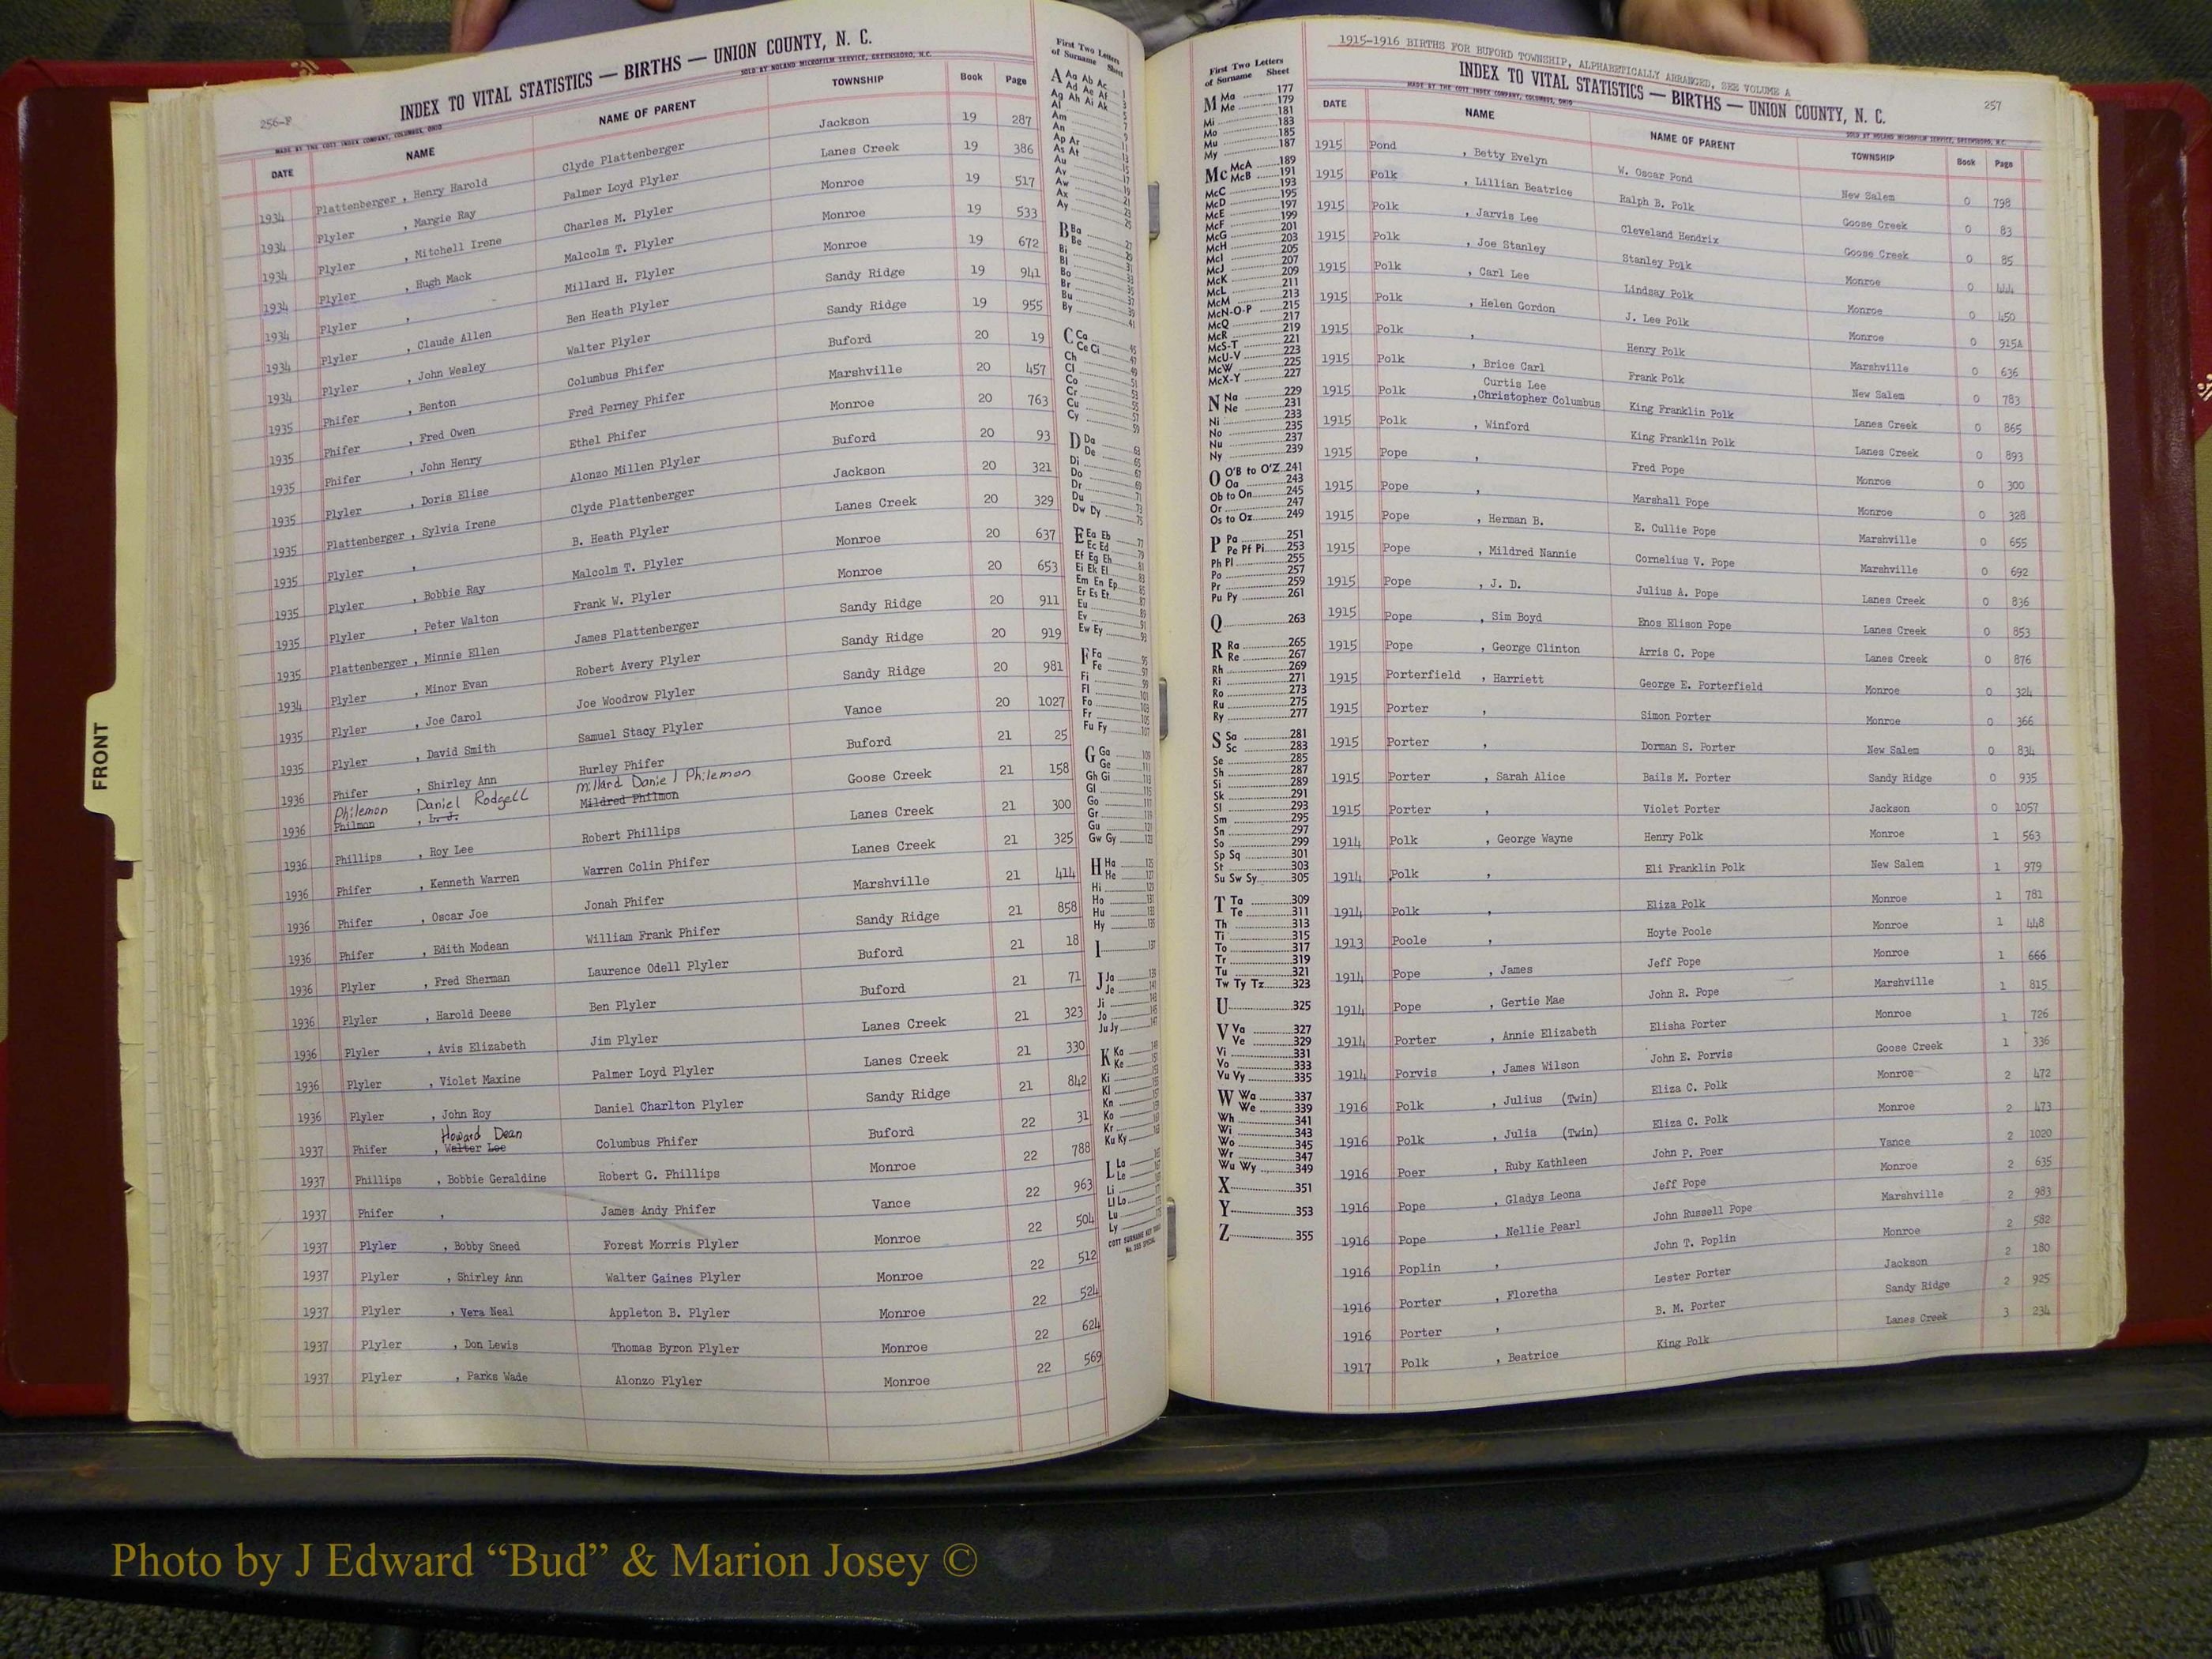 256-P
INDEX TO VITAL STATISTICS — BIRTHS — UNION COUNTY, N. C.
MADE BY THE COTT INDEX COMPANY, COLUMBUS, OHIO SOLD BY NOLAND MICROFILM SERVICE, GREENSBORO, N.C.
DATE NAME NAME OF PARENT TOWNSHIP Book Page
1934 Plattenberger , Henry Harold Clyde Plattenberger Jackson 19 287
1934 Plyler , Margie Ray Palmer Loyd Plyler Lanes Creek 19 386
1934 Plyler , Mitchell Irene Charles M. Plyler Monroe 19 517
1934 Plyler , Hugh Mack Malcolm T. Plyler Monroe 19 533
1934 Plyler , Millard H. Plyler Monroe 19 672
1934 Plyler , Claude Allen Ben Heath Plyler Sandy Ridge 19 941
1934 Plyler , John Wesley Walter Plyler Sandy Ridge 19 955
1935 Phifer , Benton Columbus Phifer Buford 20 19
1935 Phifer , Fred Owen Fred Perney Phifer Marshville 20 457
1935 Phifer , John Henry Ethel Phifer Monroe 20 763
1935 Plyler , Doris Elise Alonzo Millen Plyler Buford 20 93
1935 Plattenberger , Sylvia Irene Clyde Plattenberger Jackson 20 321
1935 Plyler , B. Heath Plyler Lanes Creek 20 329
1935 Plyler , Bobbie Ray Malcolm T. Plyler Monroe 20 637
1935 Plyler , Peter Walton Frank W. Plyler Monroe 20 653
1935 Plattenberger , Minnie Ellen James Plattenberger Sandy Ridge 20 911
1934 Plyler , Minor Evan Robert Avery Plyler Sandy Ridge 20 919
1935 Plyler , Joe Carol Joe Woodrow Plyler Sandy Ridge 20 981
1935 Plyler , David Smith Samuel Stacy Plyler Vance 20 1027
1936 Phifer , Shirley Ann Hurley Phifer Buford 21 25
Philemon Daniel Rodgell Millard Daniel Philemon
1936 Philmon , L. J. Mildred Philmon Goose Creek 21 158
1936 Phillips , Roy Lee Robert Phillips Lanes Creek 21 300
1936 Phifer , Kenneth Warren Warren Colin Phifer Lanes Creek 21 325
1936 Phifer , Oscar Joe Jonah Phifer Marshville 21 414
1936 Phifer , Edith Modean William Frank Phifer Sandy Ridge 21 858
1936 Plyler , Fred Sherman Laurence Odell Plyler Buford 21 18
1936 Plyler , Harold Deese Ben Plyler Buford 21 71
1936 Plyler , Avis Elizabeth Jim Plyler Lanes Creek 21 323
1936 Plyler , Violet Maxine Palmer Loyd Plyler Lanes Creek 21 330
1936 Plyler , John Roy Daniel Charlton Plyler Sandy Ridge 21 842
Howard Dean
1937 Phifer , Walter Lee Columbus Phifer Buford 22 31
1937 Phillips , Bobbie Geraldine Robert G. Phillips Monroe 22 788
1937 Phifer , James Andy Phifer Vance 22 963
1937 Plyler , Bobby Sneed Forest Morris Plyler Monroe 22 504
1937 Plyler , Shirley Ann Walter Gaines Plyler Monroe 22 512
1937 Plyler , Vera Neal Appleton B. Plyler Monroe 22 524
1937 Plyler , Don Lewis Thomas Byron Plyler Monroe 22 624
1937 Plyler , Parks Wade Alonzo Plyler Monroe 22 569
FRONT
First Two Letters
of Surname Sheet
A Aa Ab Ac
Ad Ae Af
Ag Ah Ai Ak
Al
Am
An
Ap Ar
As At
Au
Av
Aw
Ax
Ay
B Ba
Be
Bi
Bl
Bo
Br
Bu
By
C Ca
Ce Ci
Ch
Cl
Co
Cr
Cu
Cy
D Da
De
Di
Do
Dr
Du
Dw Dy
E Ea Eb
Ec Ed
Ef Eg Eh
Ei Ek El
Em En Ep
Er Es Et
Eu
Ev
Ew Ey
F Fa
Fe
Fi
Fl
Fo
Fr
Fu Fy
G Ga
Ge
Gh Gi
Gl
Go
Gr
Gu
Gw Gy
H Ha
He
Hi
Ho
Hu
Hy
I
J Ja
Je
Ji
Jo
Ju Jy
K Ka
Ke
Ki
Kl
Kn
Ko
Kr
Ku Ky
L La
Le
Li
Ll Lo
Lu
Ly
First Two Letters
of Surname Sheet
M Ma 177
Me 179
Mi 181
Mo 183
Mu 185
My 187
Mc McA 189
McB 191
McC 193
McD 195
McE 197
McF 199
McG 201
McH 203
McI 205
McJ 207
McK 209
McL 211
McM 213
McN-O-P 215
McQ 217
McR 219
McS-T 221
McU-V 223
McW 225
McX-Y 227
N Na 229
Ne 231
Ni 233
No 235
Nu 237
Ny 239
O O'B to O'Z 241
Oa 243
Ob to On 245
Or 247
Os to Oz 249
P Pa 251
Pe Pf Pi 253
Ph Pl 255
Po 257
Pr 259
Pu Py 261
Q 263
R Ra 265
Re 267
Rh 269
Ri 271
Ro 273
Ru 275
Ry 277
S Sa 281
Sc 283
Se 285
Sh 287
Si 289
Sk 291
Sl 293
Sm 295
Sn 297
So 299
Sp Sq 301
St 303
Su Sw Sy 305
T Ta 309
Te 311
Th 313
Ti 315
To 317
Tr 319
Tu 321
Tw Ty Tz 323
U 325
V Va 327
Ve 329
Vi 331
Vo 333
Vu Vy 335
W Wa 337
We 339
Wh 341
Wi 343
Wo 345
Wr 347
Wu Wy 349
X 351
Y 353
Z 355
1915-1916 BIRTHS FOR BUFORD TOWNSHIP, ALPHABETICALLY ARRANGED, SEE VOLUME A
INDEX TO VITAL STATISTICS — BIRTHS — UNION COUNTY, N. C. 257
MADE BY THE COTT INDEX COMPANY, COLUMBUS, OHIO SOLD BY NOLAND MICROFILM SERVICE, GREENSBORO, N.C.
DATE NAME NAME OF PARENT TOWNSHIP Book Page
1915 Pond , Betty Evelyn W. Oscar Pond New Salem 0 798
1915 Polk , Lillian Beatrice Ralph B. Polk Goose Creek 0 83
1915 Polk , Jarvis Lee Cleveland Hendrix Goose Creek 0 85
1915 Polk , Joe Stanley Stanley Polk Monroe 0 444
1915 Polk , Carl Lee Lindsay Polk Monroe 0 450
1915 Polk , Helen Gordon J. Lee Polk Monroe 0 915A
1915 Polk , Henry Polk Marshville 0 636
1915 Polk , Brice Carl Frank Polk New Salem 0 783
Curtis Lee
1915 Polk ,Christopher Columbus King Franklin Polk Lanes Creek 0 865
1915 Polk , Winford King Franklin Polk Lanes Creek 0 893
1915 Pope , Fred Pope Monroe 0 300
1915 Pope , Marshall Pope Monroe 0 328
1915 Pope , Herman B. E. Cullie Pope Marshville 0 655
1915 Pope , Mildred Nannie Cornelius V. Pope Marshville 0 692
1915 Pope , J. D. Julius A. Pope Lanes Creek 0 836
1915 Pope , Sim Boyd Enos Elison Pope Lanes Creek 0 853
1915 Pope , George Clinton Arris C. Pope Lanes Creek 0 876
1915 Porterfield , Harriett George E. Porterfield Monroe 0 324
1915 Porter , Simon Porter Monroe 0 366
1915 Porter , Dorman S. Porter New Salem 0 834
1915 Porter , Sarah Alice Bails M. Porter Sandy Ridge 0 935
1915 Porter , Violet Porter Jackson 0 1057
1914 Polk , George Wayne Henry Polk Monroe 1 563
1914 Polk , Eli Franklin Polk New Salem 1 979
1914 Polk , Eliza Polk Monroe 1 781
1913 Poole , Hoyte Poole Monroe 1 448
1914 Pope , James Jeff Pope Monroe 1 666
1914 Pope , Gertie Mae John R. Pope Marshville 1 815
1914 Porter , Annie Elizabeth Elisha Porter Monroe 1 726
1914 Porvis , James Wilson John E. Porvis Goose Creek 1 336
1916 Polk , Julius (Twin) Eliza C. Polk Monroe 2 472
1916 Polk , Julia (Twin) Eliza C. Polk Monroe 2 473
1916 Poer , Ruby Kathleen John P. Poer Vance 2 1020
1916 Pope , Gladys Leona Jeff Pope Monroe 2 635
1916 Pope , Nellie Pearl John Russell Pope Marshville 2 983
1916 Poplin , John T. Poplin Monroe 2 582
1916 Porter , Floretha Lester Porter Jackson 2 180
1916 Porter , B. M. Porter Sandy Ridge 2 925
1917 Polk , Beatrice King Polk Lanes Creek 3 234
Photo by J Edward “Bud” & Marion Josey ©